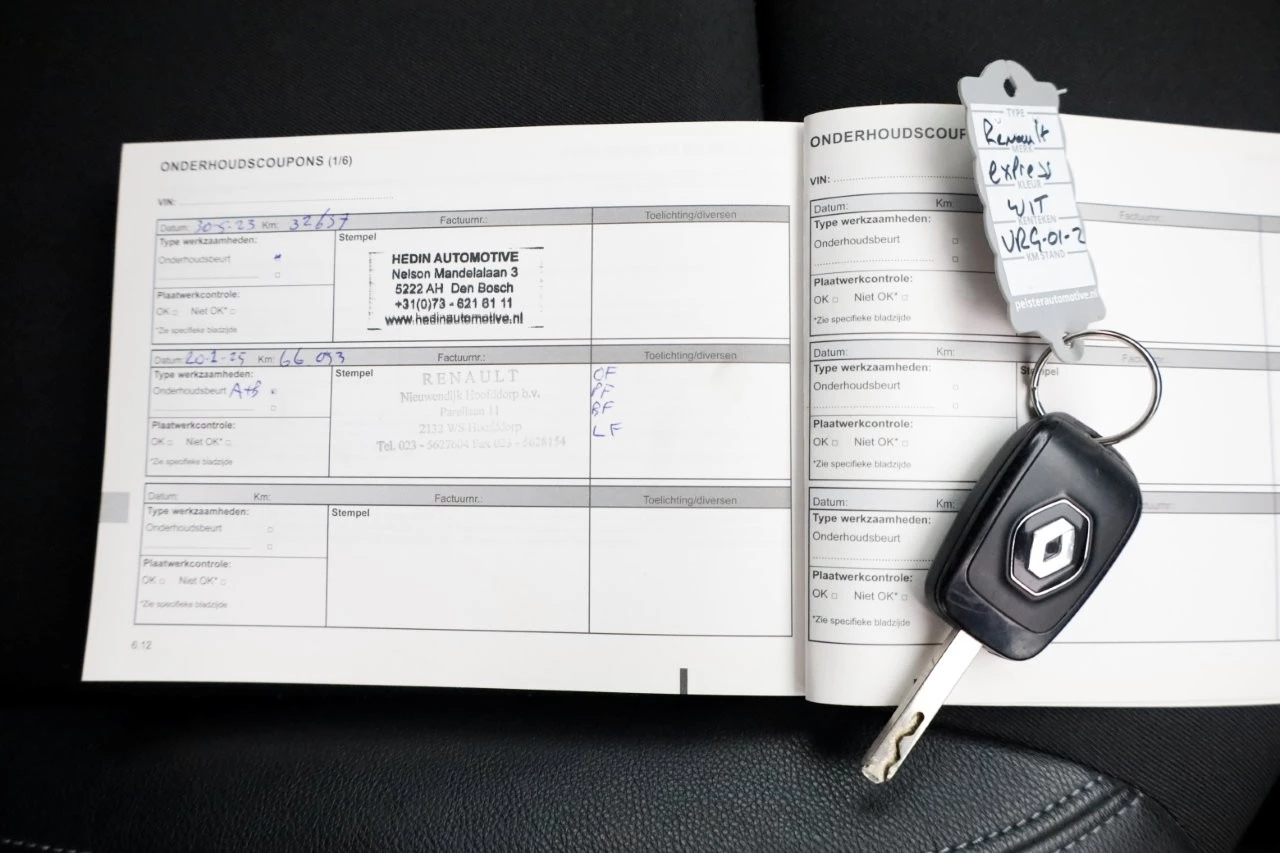 ONDERHOUDSCOUPONS (1/6)
VIN:
Datum: 30-5-23 Km: 32657 Factuurnr.: Toelichting/diversen
Type werkzaamheden:
Stempel
Onderhoudsbeurt
HEDIN AUTOMOTIVE
Nelson Mandelalaan 3
5222 AH Den Bosch
+31(0)73 - 621 81 11
www.hedinautomotive.nl
Plaatwerkcontrole:
OK Niet OK*
*Zie specifieke bladzijde
Datum: Km: 66 093 Factuurnr.: Toelichting/diversen
Type werkzaamheden:
Stempel
Onderhoudsbeurt A+B
RENAULT
Nieuwendijk Hoofddorp b.v.
Parellaan 11
2132 WS Hoofddorp
Tel. 023 - 5627604 Fax 023 - 5628154
OF
PF
BF
LF
Plaatwerkcontrole:
OK Niet OK*
*Zie specifieke bladzijde
Datum: Km: Factuurnr.: Toelichting/diversen
Type werkzaamheden:
Stempel
Onderhoudsbeurt
Plaatwerkcontrole:
OK Niet OK*
*Zie specifieke bladzijde
6.12
ONDERHOUDSCOUP
VIN:
Datum: Km: Toelichting/diversen
Type werkzaamheden:
Onderhoudsbeurt
Plaatwerkcontrole:
OK Niet OK*
*Zie specifieke bladzijde
Datum: Km: Factuurnr.:
Type werkzaamheden:
Stempel
Onderhoudsbeurt
Plaatwerkcontrole:
OK Niet OK*
*Zie specifieke bladzijde
Datum: Km:
Type werkzaamheden:
Onderhoudsbeurt
Plaatwerkcontrole:
OK Niet OK*
*Zie specifieke bladzijde
TYPE
Renault
MERK
express
KLEUR
WIT
KENTEKEN
VRG-01-Z
KM STAND
peisterautomotive.nl